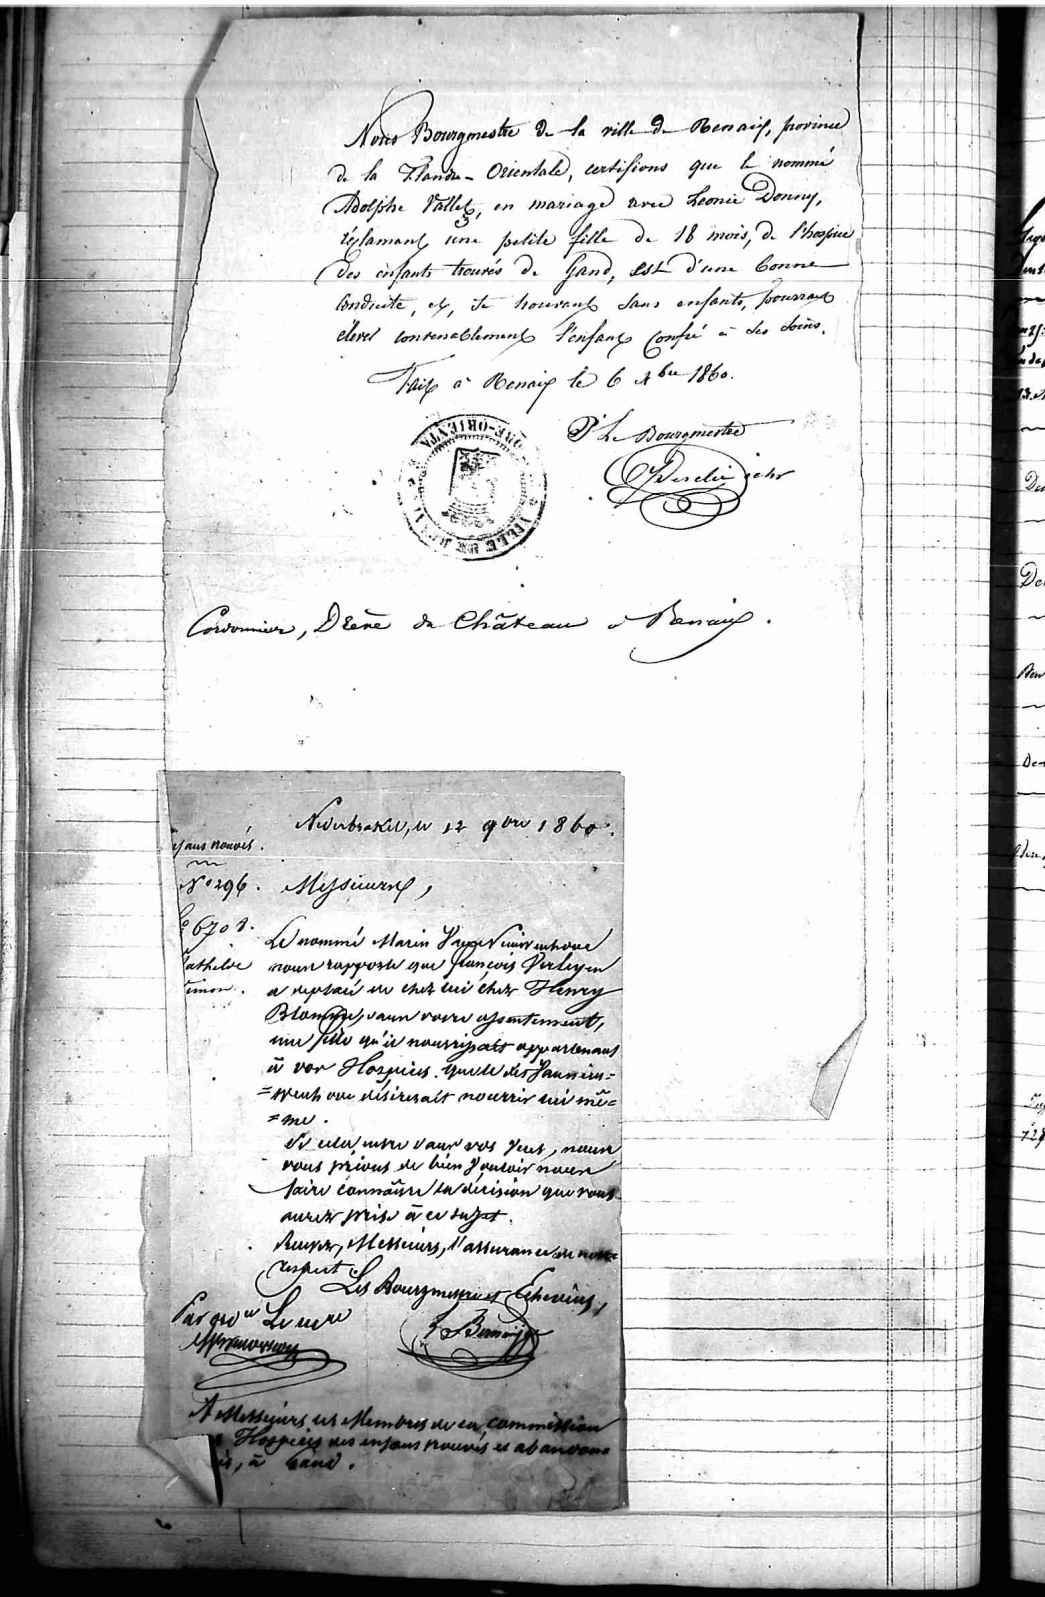 Nous Bourgmestre de la ville de Renaix, province
de la Flandre-Orientale, certifions que le nommé
Adolphe Vallez, en mariage avec Leonie Donny,
réclamant une petite fille de 18 mois, de l'hospice
des enfants trouvés de Gand, est d'une bonne
conduite, et, se trouvant sans enfants, pourrait
élever convenablement l'enfant confié à ses soins.
Fait à Renaix le 6 Xbre 1860.
Le Bourgmestre
Cordonnier, Drève du Château à Renaix.
Nederbrakel, le 12 9bre 1860.
Enfans trouvés.
N° 296. Messieurs,
6708.
Le nommé Marin
nous rapporte que françois Verleyen
a deplacé de chez lui chez Henry
sans votre assentiment,
une fille qu'il nourrissait appartenant
à vos Hospices. que le dit
désirerait nourrir lui mê=
=me.
Si cela entre dans vos vues, nous
vous prions de bien Vouloir nous
faire connaître la décision que vous
aurez prise à ce sujet.
Recevez, Messieurs, l'assurance de notre
respect.
Les Bourgmestre et Echevins,
Par
A Messieurs les Membres de la commission
Hospices des enfans trouvés et abandonn
és, à Gand.